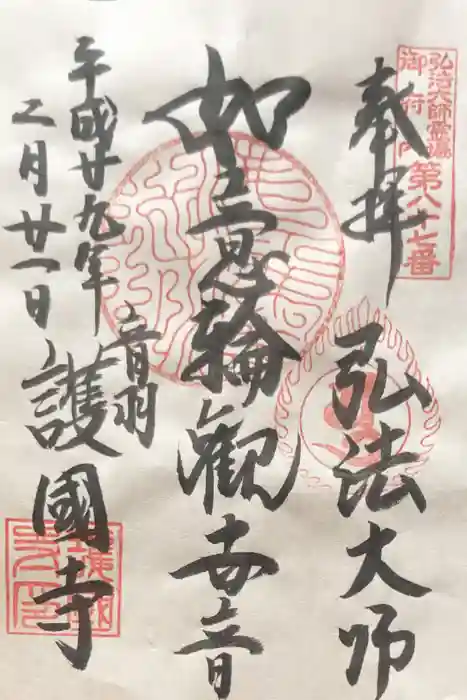 弘法大師霊場
御府内
第八十七番
奉拝
弘法大師
如意輪観世音
音羽
護國寺
平成廿九年
二月廿一日